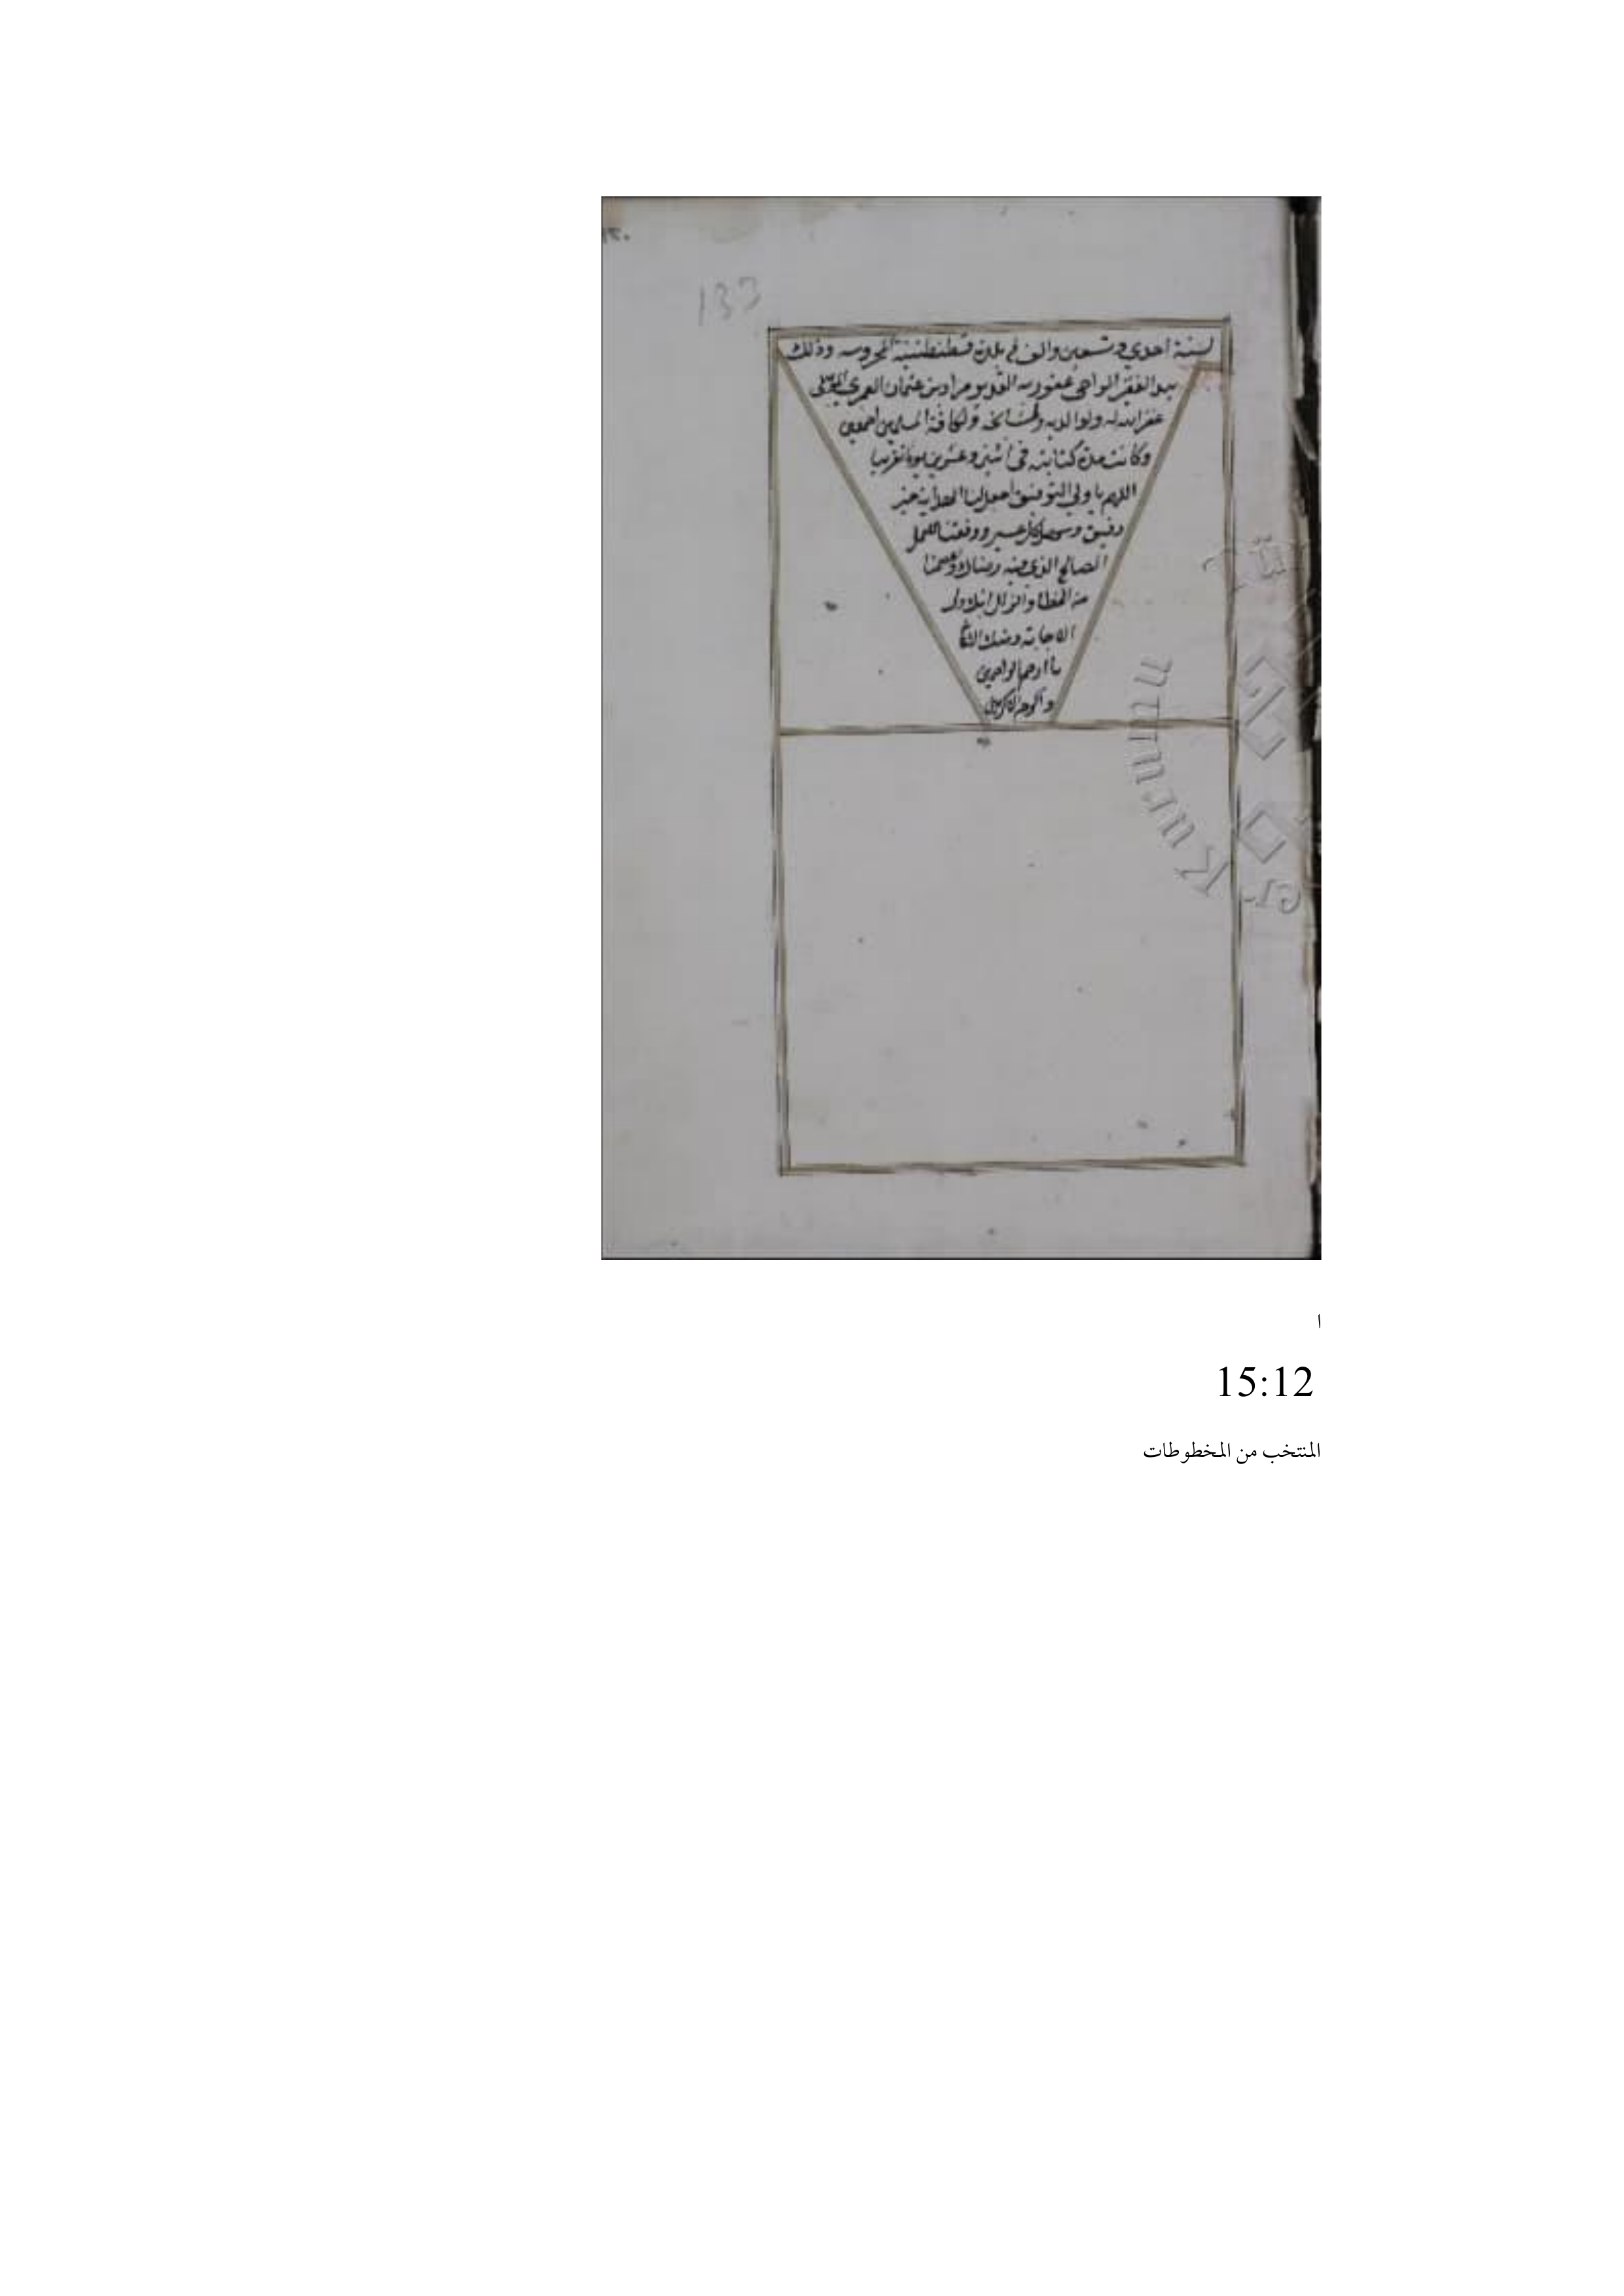 ١٣٠
133
لسنة احدي وتسعين والف في بلدة قسطنطنية المحروسه وذلك
بيد الفقير الراجي عفو ربه القدير مراد بن عثمان العمري الموصلي
غفر الله له ولوالديه ولمشايخه ولكافة المسلمين اجمعين
وكانت مدة كتابته في اثني وعشرين يوما تقريبا
اللهم يا ولي التوفيق اجعل لنا الهداية خير
رفيق وسهل كل عسير ووفقنا للعمل
الصالح الذي فيه رضاك واعصمنا
من الخطا والزلل انك ولي
الاجابة ومنك
يا ارحم الراحمين
واكرم الاكرمين
ا
15:12
المنتخب من المخطوطات